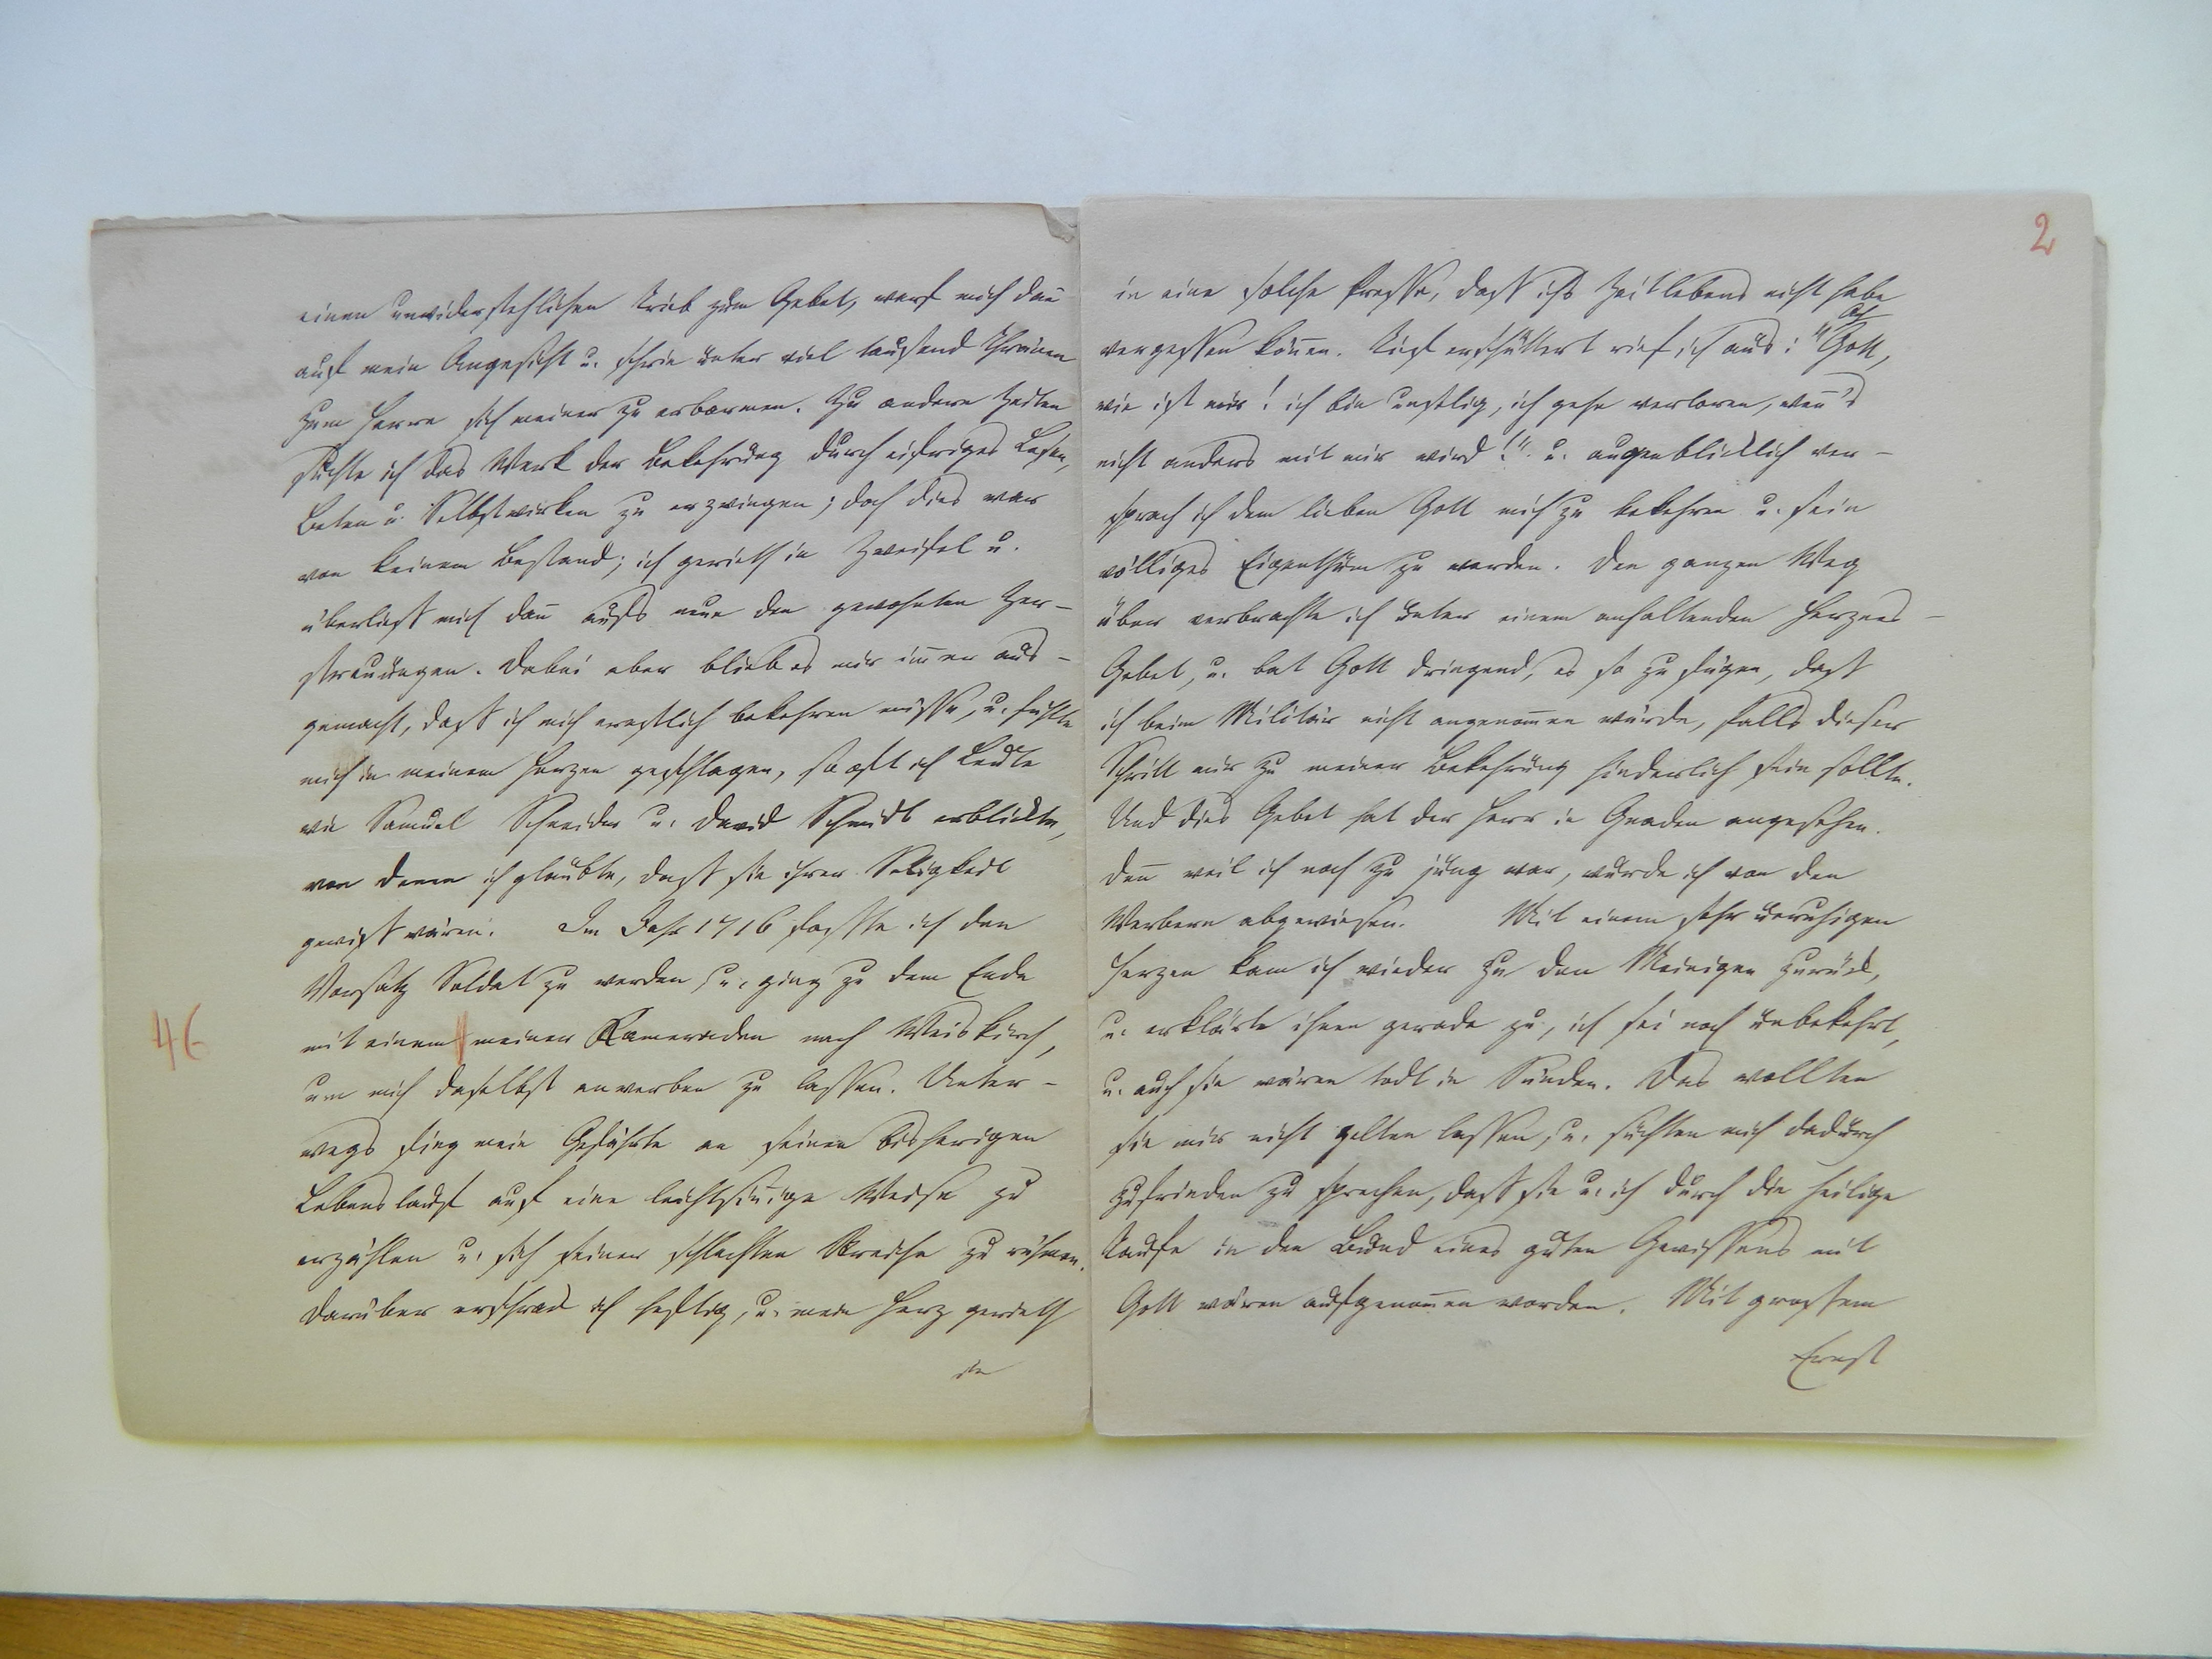 einen unwiderstehlichen Trieb zum Gebet, warf mich dañ
auf mein Angesicht u. schrie unter viel tausend Thränen
zum Herrn sich meiner zu erbarmen. Zu andern Zeiten
suchte ich das Werk der Bekehrung durch eifriges Lesen,
Beten u. Selbstwirken zu erzwingen; doch dies war
von keinem Bestand; ich gerieth in Zweifel u.
überließ mich dañ aufs neue den gewohnten Zer-
streuungen. Dabei aber blieb es mir im̃er aus-
gemacht, daß ich mich ernstlich bekehren müsse, u. fühlte
mich in meinem Herzen geschlagen, so oft ich Leute
wie Samuel Schneider u. David Schmidt erblickte,
von denen ich glaubte, daß sie ihrer Seligkeit
gewiß wären. Im Jahr 1716 faßte ich den
Vorsatz Soldat zu werden, u. ging zu dem Ende
46
mit einem meiner Kameraden nach Weiskirch,
um mich daselbst anwerben zu lassen. Unter-
wegs fing mein Gefährte an seinen bisherigen
Lebenslauf auf eine leichtsiñige Weise zu
erzählen u. sich seiner schlechten Streiche zu rühmen.
Darüber erschrack ich heftig, u. mein Herz gerieth
in
2
in eine solche Presse, daß ichs Zeitlebens nicht habe
vergessen köñen. Tief erschüttert rief ich aus: "Ach Gott,
wie ist mir! ich bin unselig, ich gehe verloren, weñ's
nicht anders mit mir wird!" u. augenblicklich ver-
sprach ich dem lieben Gott mich zu bekehren u. sein
völliges Eigenthum zu werden. Den ganzen Weg
über verbrachte ich unter einem anhaltenden Herzens-
Gebet, u. bat Gott dringend, es so zu fügen, daß
ich beim Militär nicht angenom̃en würde, falls dieser
Schritt mir zu meiner Bekehrung hinderlich sein sollte.
Und dies Gebet hat der Herr in Gnaden angesehen.
Deñ weil ich noch zu jung war, wurde ich von den
Werbern abgewiesen. Mit einem sehr unruhigen
Herzen kam ich wieder zu den Meinigen zurück,
u. erklärte ihnen gerade zu, ich sei noch unbekehrt,
u. auch sie wären todt in Sünden. Das wollten
sie mir nicht gelten lassen, u. suchten mich dadurch
zufrieden zu sprechen, daß sie u. ich durch die heilige
Taufe in den Bund eines guten Gewissens mit
Gott wären aufgenom̃en worden. Mit großem
Ernst